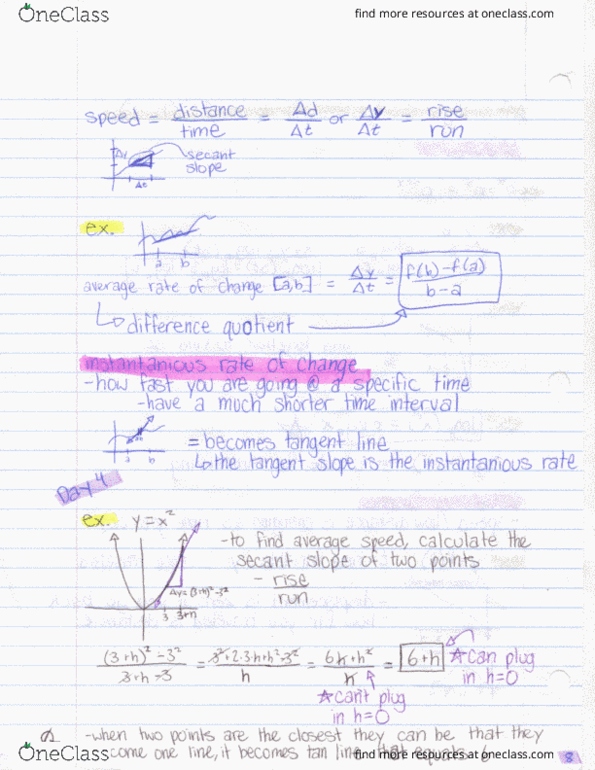 OneClass
find more resources at oneclass.com
speed = distance/time = Δd/Δt or Δy/Δt = rise/run
Δy
secant
slope
Δt
ex.
a b
average rate of change [a,b] = Δy/Δt = f(b)-f(a)/b-a
↳ difference quotient
instantanious rate of change
-how fast you are going @ a specific time
-have a much shorter time interval
a b
= becomes tangent line
↳ the tangent slope is the instantanious rate
Day 4
ex. y = x²
-to find average speed, calculate the
secant slope of two points
- rise/run
Δy=(3+h)²-3²
3 3+h
(3+h)²-3²/3+h-3 = 3²+2·3h+h²-3²/h = 6h+h²/h = 6+h ☆can plug
in h=0
☆can't plug
in h=0
-when two points are the closest they can be that they
come one line, it becomes tan line that equals
OneClass
find more resources at oneclass.com
8